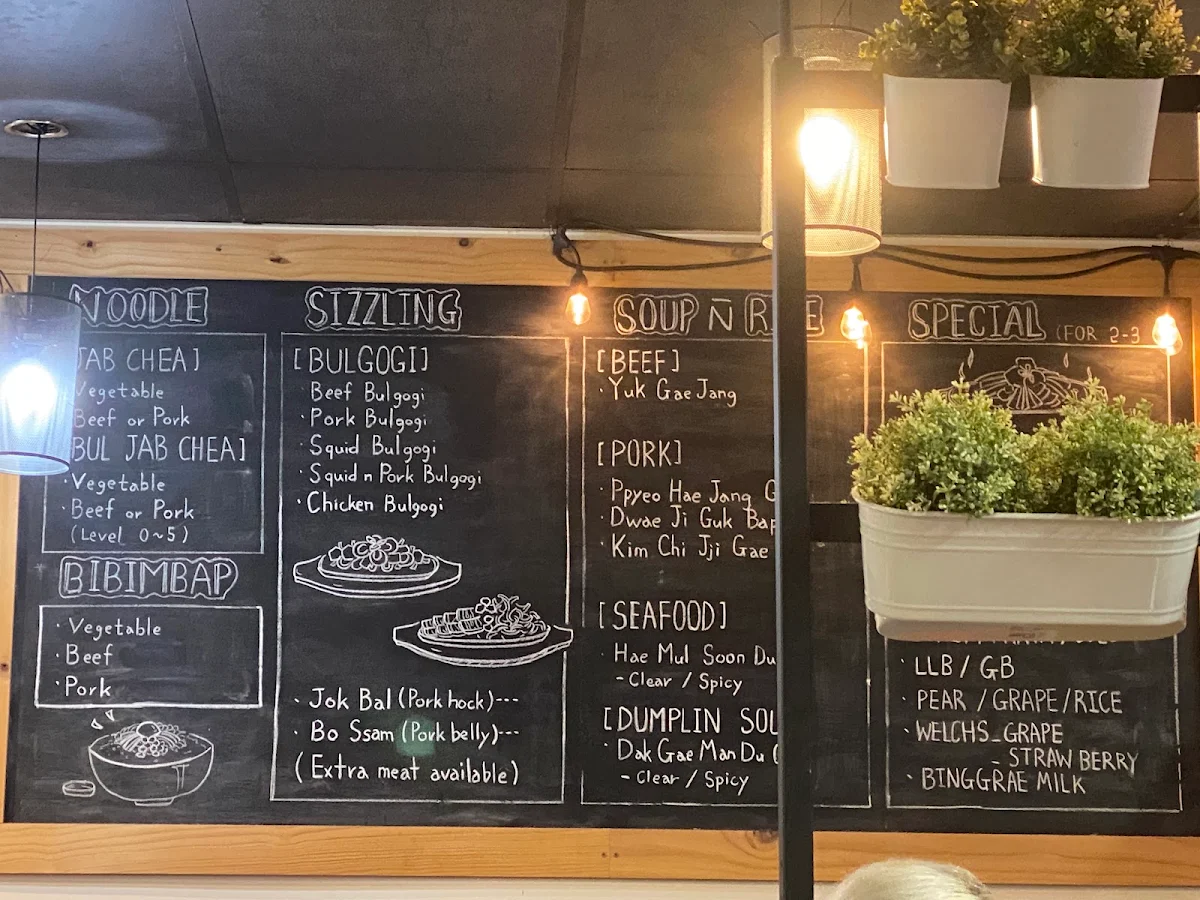 NOODLE
JAB CHEA]
Vegetable
Beef or Pork
BUL JAB CHEA]
· Vegetable
· Beef or Pork
(Level 0~5)
BIBIMBAP
· Vegetable
· Beef
· Pork
SIZZLING
[BULGOGI]
Beef Bulgogi
· Pork Bulgogi
· Squid Bulgogi
· Squid n Pork Bulgogi
· Chicken Bulgogi
· Jok Bal (Pork hock)---
· Bo Ssam (Pork belly)---
(Extra meat available)
SOUP N
[BEEF]
· Yuk Gae Jang
[PORK]
· Ppyeo Hae Jang
· Dwae Ji Guk Bap
· Kim Chi Jji Gae
[SEAFOOD]
· Hae Mul Soon Du
- Clear / Spicy
[DUMPLIN
· Dak Gae Man Du
- Clear / Spicy
SPECIAL (FOR 2-3
· LLB / GB
· PEAR / GRAPE / RICE
· WELCHS_GRAPE
- STRAWBERRY
· BINGGRAE MILK